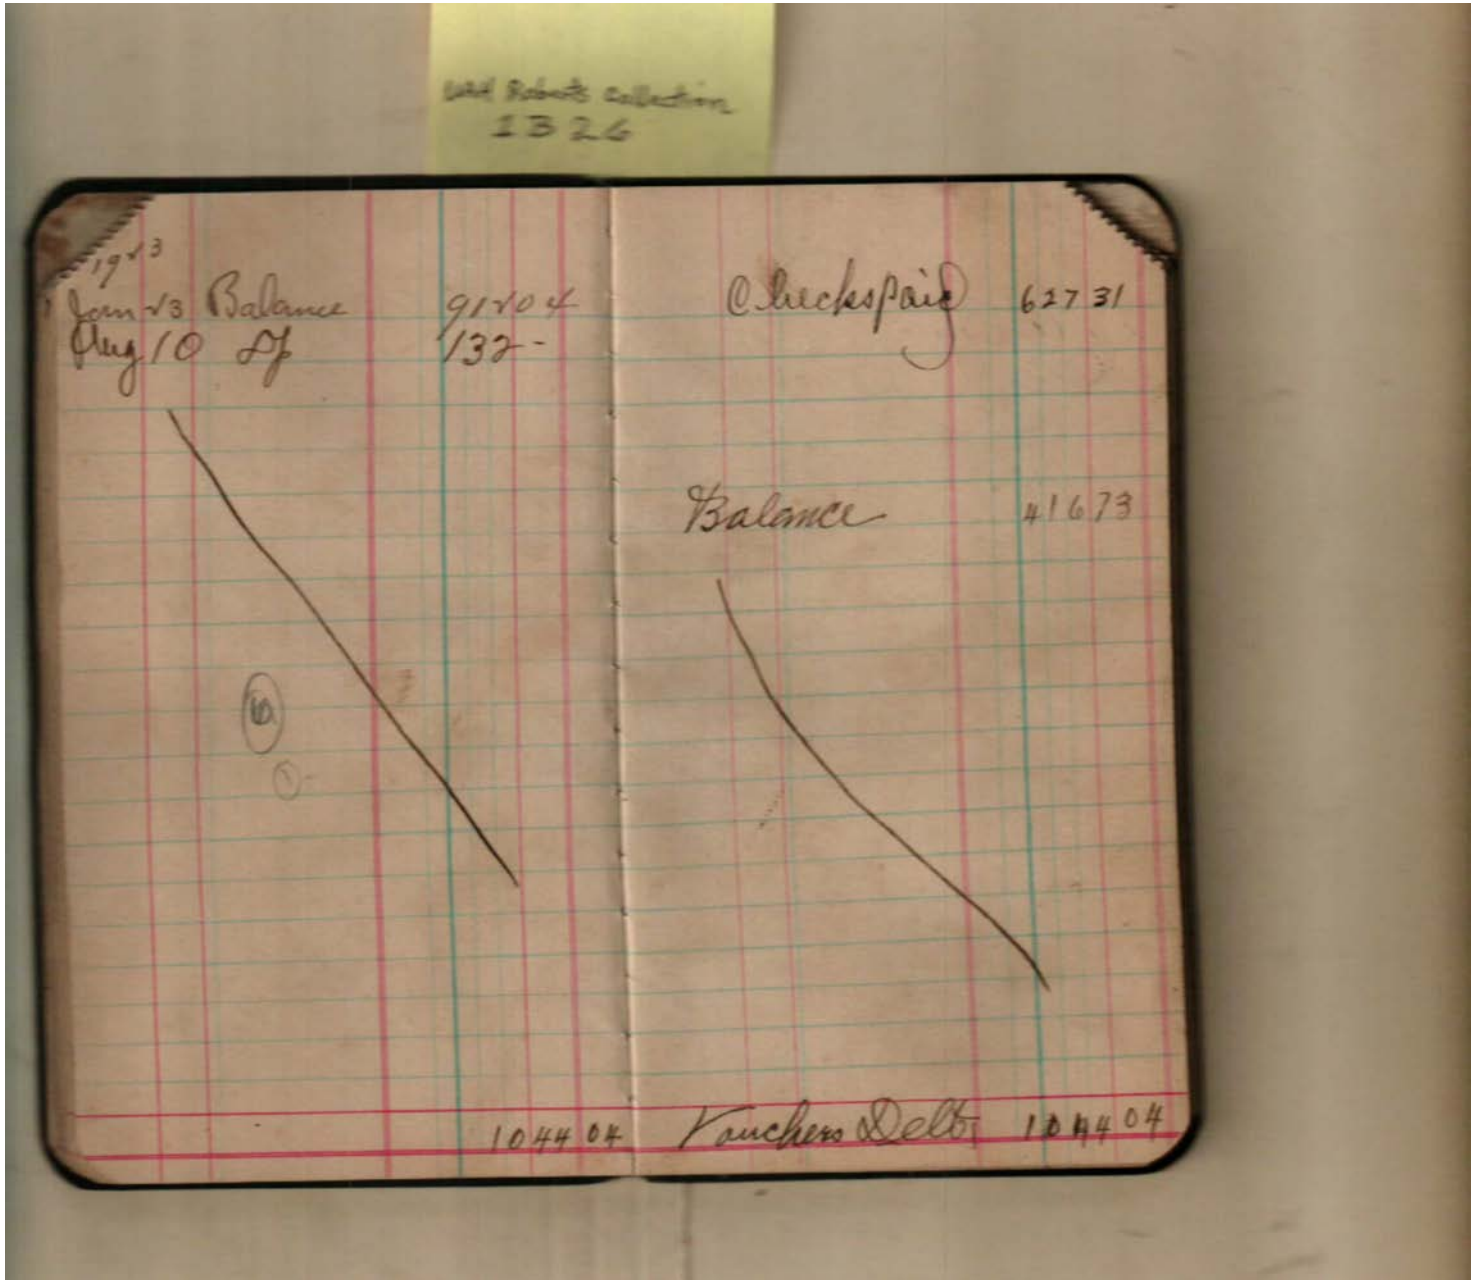 UAH Roberts Collection
1326
1923
Jan 23 Balance 912 04
Aug 10 Dp 132 -
1044 04
Checks paid 627 31
Balance 416 73
Vouchers Delt 1044 04